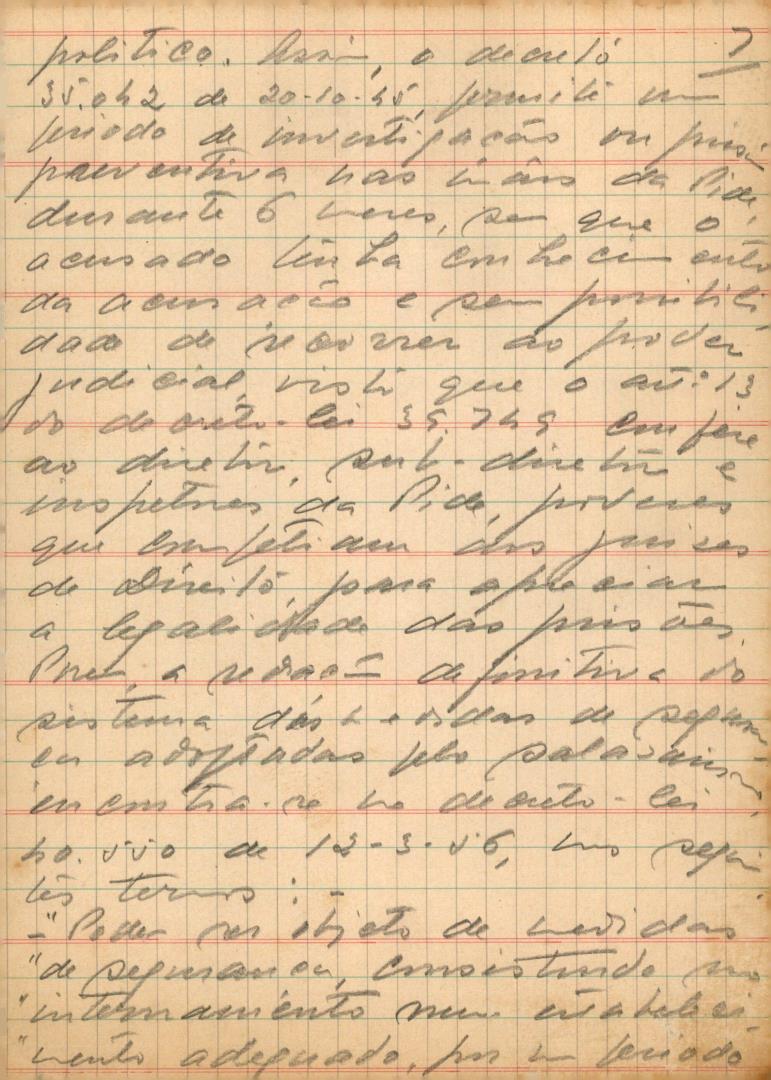 7
politico. Assim, o decreto
35.042 de 20-10-45, permite um
periodo de investigação ou prisão
preventiva nas mãos da Pide,
durante 6 meses, sem que o
acusado tenha conhecimento
da acusação e sem possibili
dade de recorrer ao poder
judicial, visto que o artº 13
do decreto-lei 35.749 confere
ao diretor, sub-diretor e
inspetores da Pide, poderes
que competiam aos juises
de Direito, para apreciar
a legalidade das prisões.
Porem, a redação definitiva do
sistema das medidas de seguran-
ça adoptadas pelo salazarismo,
encontra-se no decreto-lei
40.550 de 12-3-56, nos seguin
tes termos: -
-"Podem ser objeto de medidas
"de segurança, consistindo no
"internamento num estabeleci
"mento adequado, por um periodo